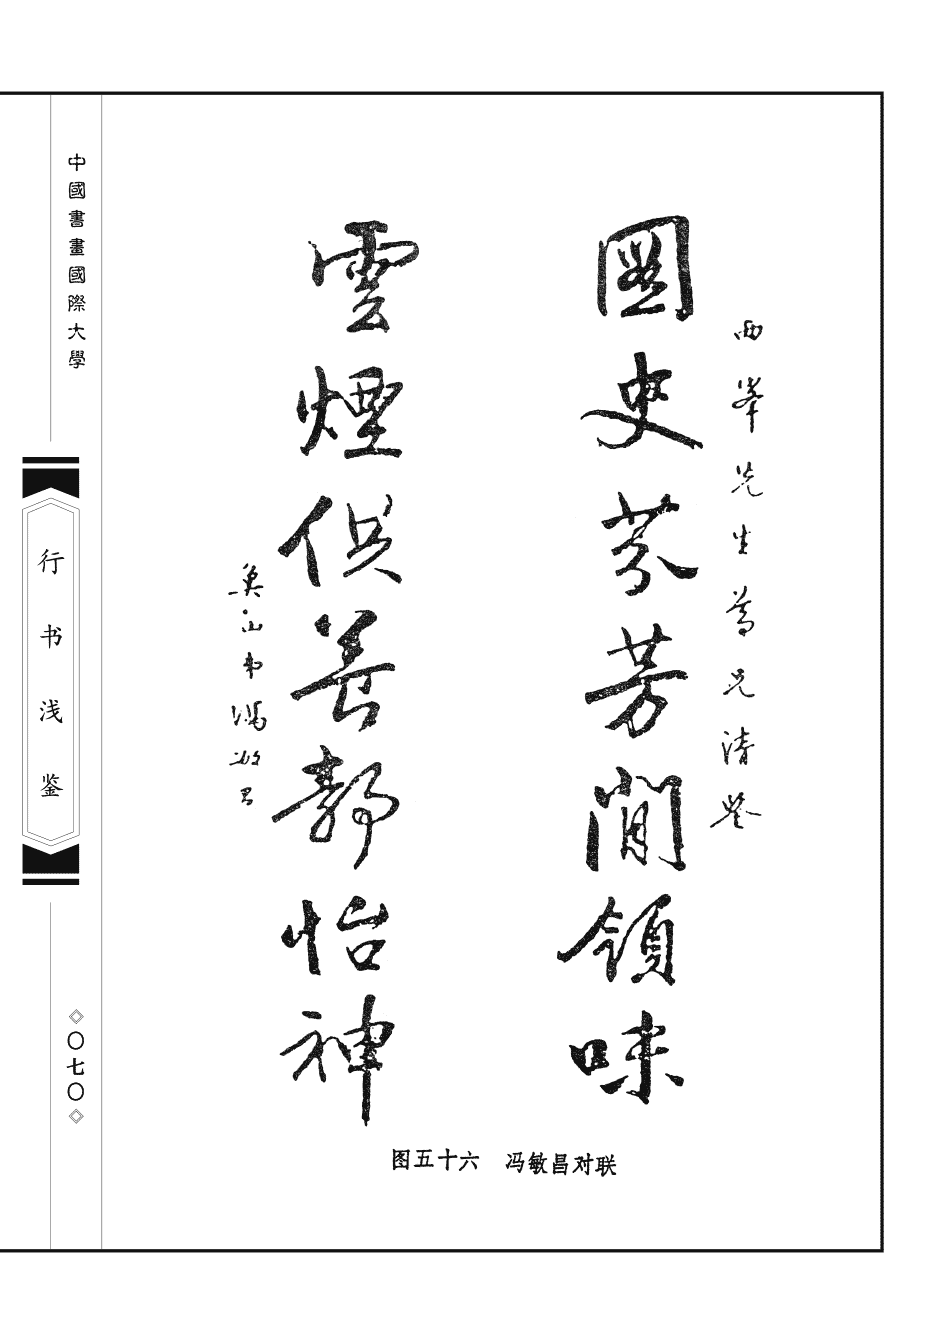 西峯先生尊兄清鑒
圖史芬芳閒領味
雲煙供養靜怡神
魚山弟馮敏昌
图五十六 冯敏昌对联
中國書畫國際大學
行书浅鉴
◇〇七〇◇